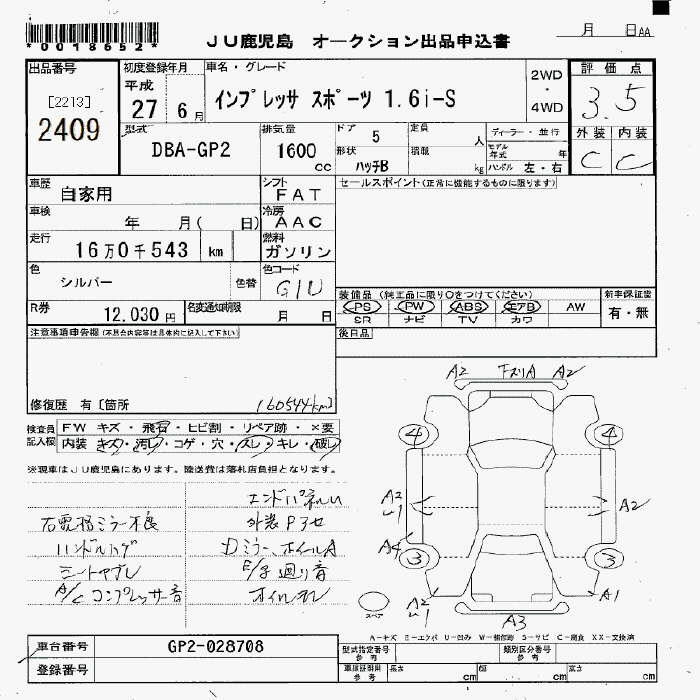 *0018652*
JU鹿児島 オークション出品申込書
月 日AA
出品番号
[2213]
2409
初度登録年月
平成
27 6月
車名・グレード
インプレッサ スポーツ 1.6i-S
2WD
・
4WD
評価点
3.5
外装 内装
C C
型式
DBA-GP2
排気量
1600
cc
ドア 5
形状 ハッチB
定員 人
積載 kg
ディーラー・並行
モデル年式 年
ハンドル 左・右
車歴
自家用
シフト
FAT
車検
年 月( 日)
冷房
AAC
走行
16万0千543 km
燃料
ガソリン
色
シルバー
色替
色コード
G1U
R券
12.030円
名変通知期限
月 日
セールスポイント(正常に機能するものに限ります)
装備品(純正品に限り○をつけてください)
PS PW ABS エアB AW
SR ナビ TV カワ
新車保証書
有・無
後日品
注意事項申告欄(不具合内容等は具体的に記入して下さい)
修復歴 有〔箇所
160544km
検査員記入欄
FW キズ・飛石・ヒビ割・リペア跡・×要
内装 キズ・汚レ・コゲ・穴・スレ・キレ・破レ
※現車はJU鹿児島にあります。陸送費は落札店負担となります。
右電格ミラー不良
ハンドルハゲ
シートヤブレ
A/Cコンプレッサー音
外装Pキセ
Dミラー、ホイールA
E/g廻り音
オイルモレ
A2 A2
4 4
A2 A2
A4
3 3
A2 A1
A3
スペア
A-キズ E-エクボ U-凹み W-補修跡 S-サビ C-腐食 XX-交換済
車台番号
GP2-028708
登録番号
型式指定番号
参考
類別区分番号
参考
車庫証明用
参考
長さ cm
幅 cm
高さ cm